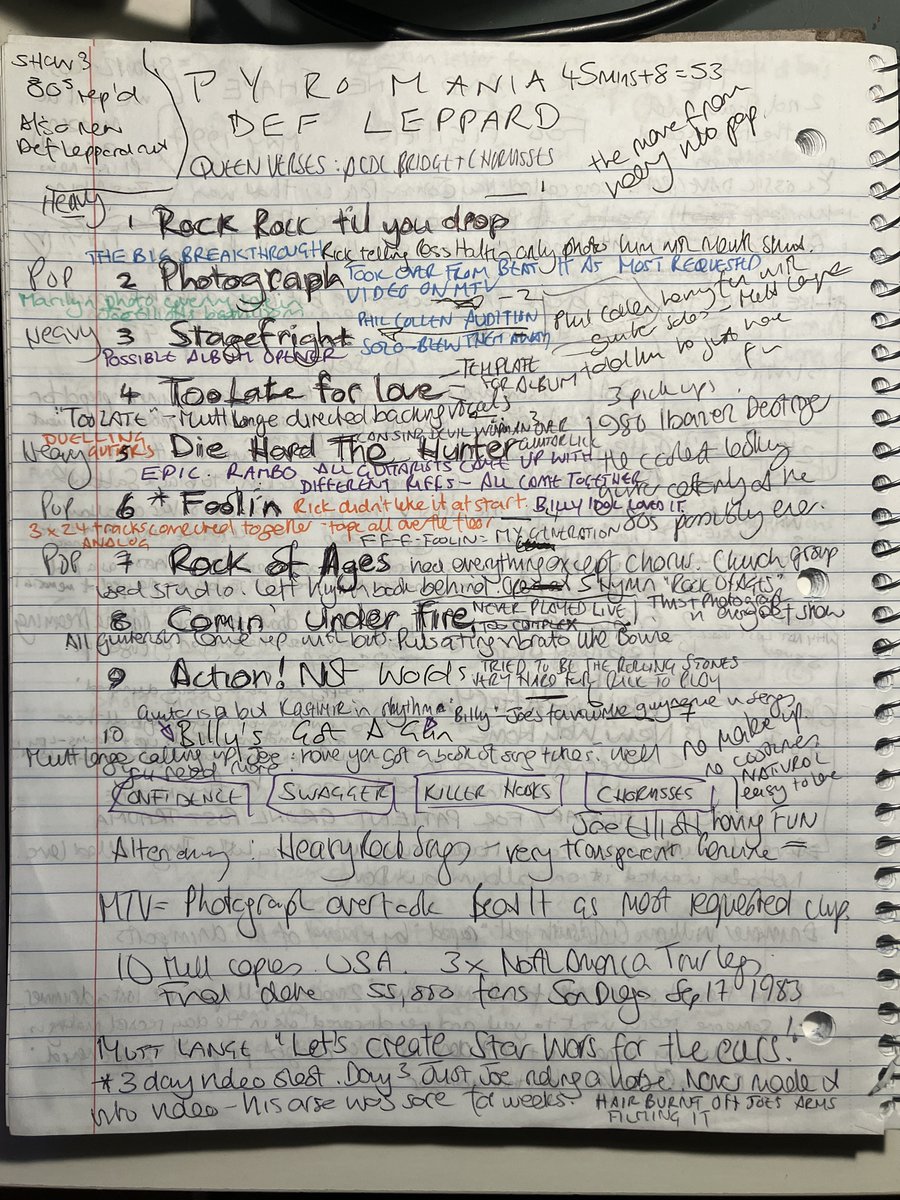 SHOW 3
80s rep'd
Also new
Def Leppard out
PYROMANIA 45mins + 8 = 53
DEF LEPPARD
the move from
heavy into pop.
QUEEN VERSES : ACDC BRIDGE + CHORUSSES
Heavy
1 Rock Rock til you drop
THE BIG BREAKTHROUGH Rick telling Ross Halfin only photo him
Pop 2 Photograph TOOK OVER FROM BEAT IT AS MOST REQUESTED
VIDEO ON MTV
Marilyn photo
Heavy 3 Stagefright PHIL COLLEN AUDITION
SOLO - BLEW THEM AWAY
Phil Collen having fun with
guitar solos - Mutt Lange
told him to just have
fun
POSSIBLE ALBUM OPENER
4 Too Late for love - TEMPLATE
FOR ALBUM
"TOO LATE" - Mutt Lange directed backing vocals
3 pick ups.
1980 Ibanez Destroyer
the coolest looking
guitar certainly of the
80s possibly ever.
DUELLING
GUITARS
CAN SING DEVIL WOMAN OVER
GUITAR LICK
Heavy 5 Die Hard The Hunter
EPIC. RAMBO ALL GUITARISTS COME UP WITH
DIFFERENT RIFFS - ALL COME TOGETHER
Pop 6 * Foolin Rick didn't like it at start. BILLY IDOL LOVED IT.
3 x 24 tracks connected together - tape all over the floor
ANALOG
F-F-F-FOOLIN = MY GENERATION
Pop 7 Rock of Ages had everything except chorus. Church group
used studio. Left hymn book behind. Open hymn "ROCK OF AGES"
8 Comin' Under Fire NEVER PLAYED LIVE
TOO COMPLEX
This + Photograph
in every set show
All guitarists come up with bits. Pulsating vibrato like Bowie
9 Action! Not Words TRIED TO BE THE ROLLING STONES
VERY HARD FOR RICK TO PLAY
Guitar is a bit KASHMIR in rhythm "Billy" Joe's favourite
10 Billy's Got A Gun
Mutt Lange calling up Joe : have you got a book of song titles - well
you need more.
no make up
no costumes
NATURAL
easy to love
CONFIDENCE SWAGGER KILLER HOOKS CHORUSSES
Joe Elliott having FUN
Alter : Heavy Rock Songs - very transparent genuine
MTV = Photograph overtook Beat It as most requested clip.
10 mill copies USA. 3 x North America Tour legs.
Final date 55,000 fans San Diego Sep 17 1983
MUTT LANGE "Let's create Star Wars for the ears!"
* 3 day video shoot. Day 3 Just Joe riding a horse. Never made it
into video - his arse was sore for weeks
HAIR BURNT OFF JOES ARMS
FILMING IT